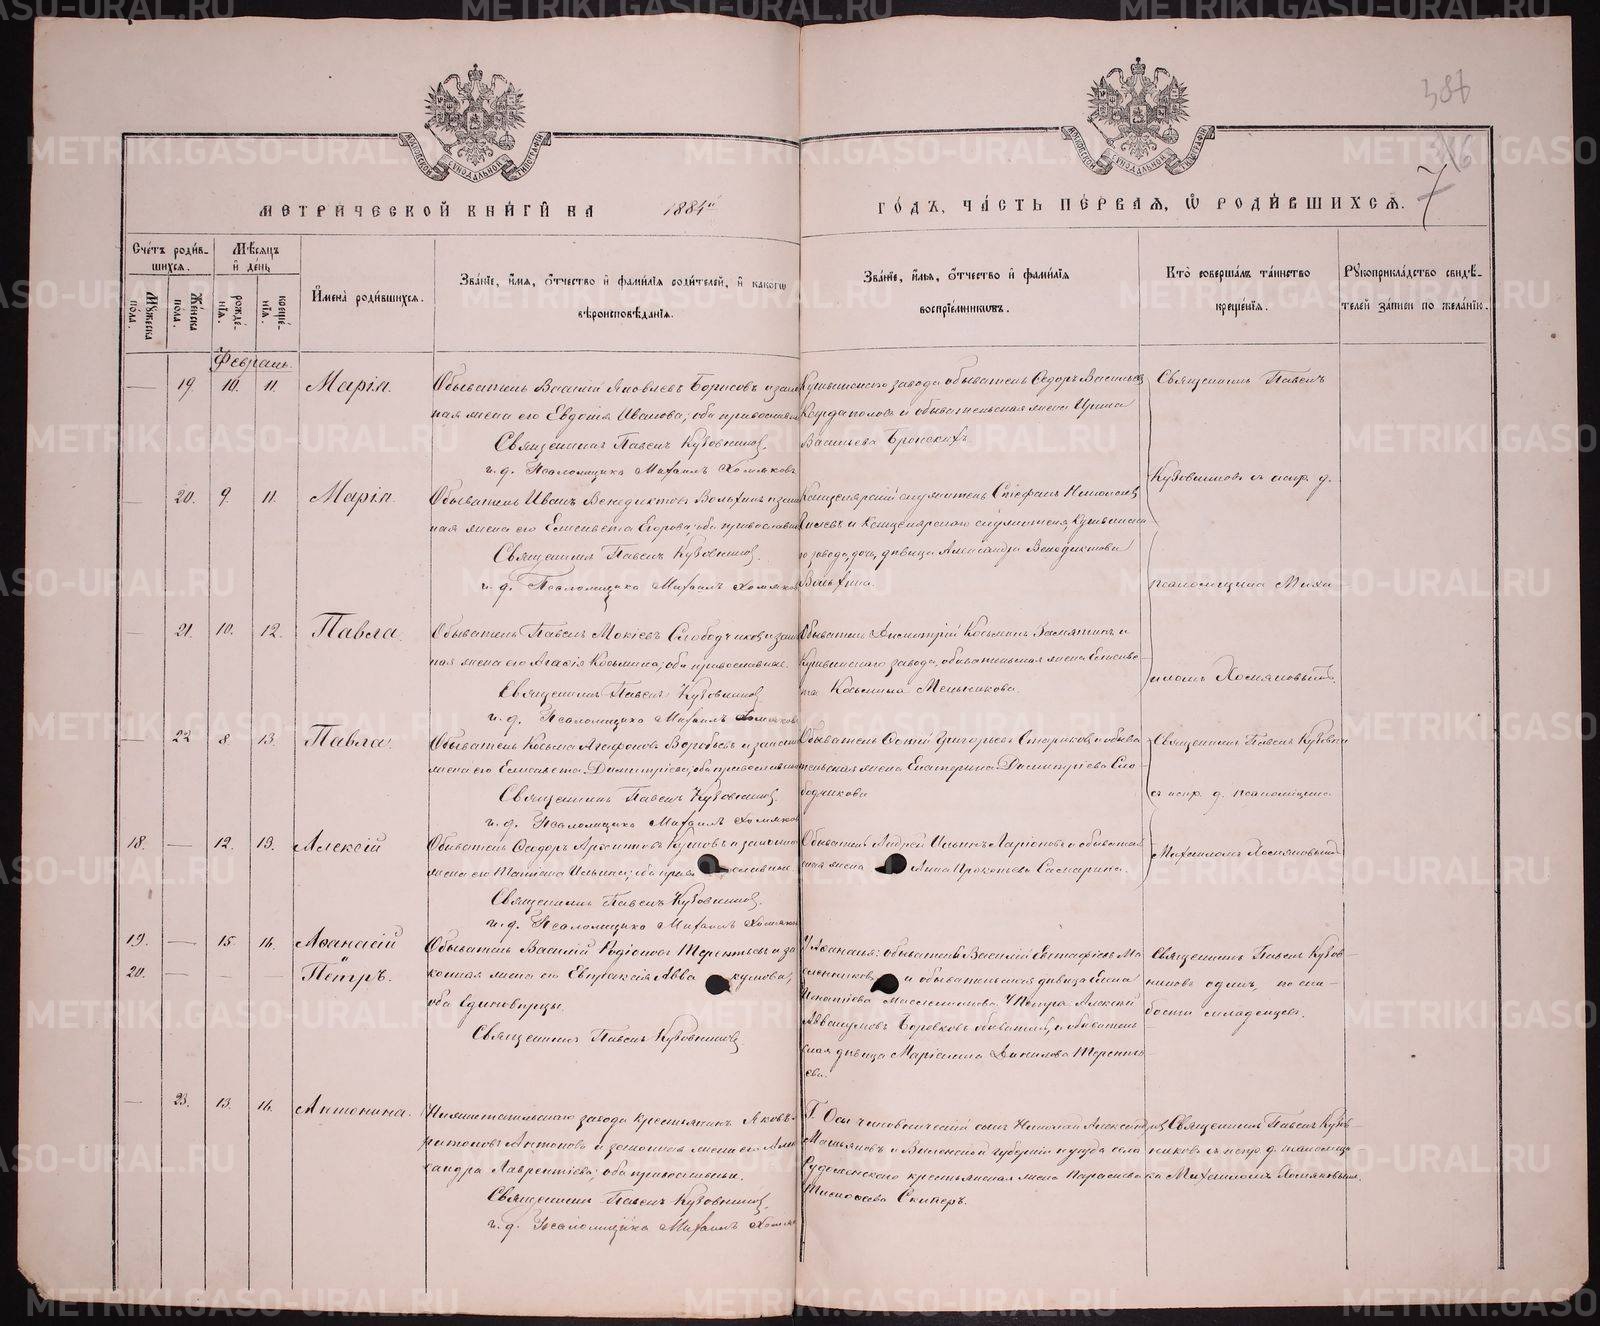 МЕТРИЧЕСКОЙ КНИГИ НА 1884й ГОДЪ, ЧАСТЬ ПЕРВАЯ, Ѡ РОДИВШИХСЯ.
386
7
Счетъ родив-
шихся.
Мѣсяцъ
и день
Мужеска
пола.
Женска
пола.
рожде-
нія.
креще-
нія.
Имена родившихся.
Званіе, имя, отчество и фамилія родителей, и какого
вѣроисповѣданія.
Званіе, имя, отчество и фамилія
воспріемниковъ.
Кто совершалъ таинство
крещенія.
Рукоприкладство свидѣ-
телей записи по желанію.
Февраль.
— 19 10. 11. Марія.
Обыватель Василій Яковлевъ Борисовъ и закон
ная жена его Евдокія Иванова; оба православн
Священникъ Павелъ Кузовников.
и. д. Псаломщика Михаилъ Хомяковъ
Кушвинскаго завода обыватель Ѳедоръ Васильевъ
и обывательская жена Ирина
Васильева
Священникъ Павелъ
Кузовниковъ съ испр. д.
псаломщика Миха
иломъ Хомяковымъ.
— 20. 9. 11. Марія.
Обыватель Иванъ Венедиктовъ и закон
ная жена его Елисавета Егорова; оба православн
Священникъ Павелъ Кузовников.
и. д. Псаломщика Михаилъ Хомяков
Канцелярскій служитель Стефанъ Николаев
и Канцелярскаго служителя, Кушвинска
го завода, дочь, дѣвица Александра Венедиктова
— 21. 10. 12. Павла.
Обыватель Павелъ Мокіевъ Слободчиков и закон
ная жена его Агаѳія Косьмина; оба православные.
Священникъ Павелъ Кузовников
и. д. Псаломщика Михаилъ Хомяков
Обыватель Димитрій Косьминъ Замятинъ и
Кушвинскаго завода, обывательская жена Елисаве-
та Косьмина Меньшикова.
— 22 8. 13. Павла.
Обыватель Косьма Агафоновъ Воробьевъ и законн
жена его Елисавета Димитріева; оба православн
Священникъ Павелъ Кузовников.
и. д. Псаломщика Михаилъ Хомяков
Обыватель Григорьев Стариков и обыва
тельская жена Екатерина Димитріева Сло-
бодчикова
Священникъ Павелъ Кузовни
съ испр. д. псаломщика
Михаиломъ Хомяковымъ
18. — 12. 13. Алексій
Обыватель Ѳеодоръ и законна
жена его Татіана Ильина; оба православные.
Священникъ Павелъ Кузовников.
и. д. Псаломщика Михаилъ Хомяко
Обыватель Андрей Ильинъ Ларіонов и обыватель
ская жена Анна Прокопьева Самарина.
19. — 15. 16. Аѳанасій
20. — — — Петръ.
Обыватель Василій Родіонов Терентьевъ и за
конная жена его Евпраксія Аввакумова;
оба единовѣрцы.
Священникъ Павелъ Кузовников
У Аѳанасія: обыватель Василій Евстафіевъ Ма
сленников и обывательская дѣвица Елена
Игнатіева Масленникова. У Петра Алексій
Аввакумовъ Боровковъ обыватель, и обыватель
ская дѣвица Маріамна Данилова Теренть
ева.
Священникъ Павелъ Кузов-
никовъ одинъ, по сла-
бости младенцевъ.
— 23. 13. 16. Антонина.
Нижнетагильскаго завода крестьянинъ Яковъ
Антоновъ и законная жена его Алек
сандра Лаврентіева; оба православны.
Священникъ Павелъ Кузовников.
и. д. Псаломщика Михаилъ Хомяк
Г. Осы чиновническій сынъ Николай Александров
и Виленской губерніи уѣзда села
крестьянская жена Параскева
Священникъ Павелъ Кузов-
никовъ съ испр. д. псаломщи
ка Михаиломъ Хомяковымъ.
METRIKI.GASO-URAL.RU